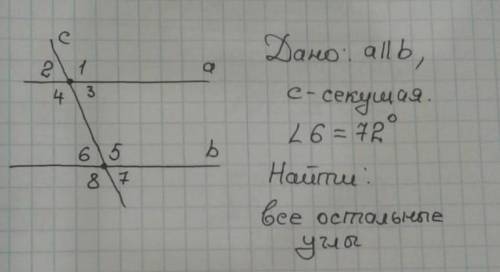 c
2 1 a
4 3
6 5 b
8 7
Дано: a||b,
c-секущая.
∠6=72°
Найти:
все остальные
углы